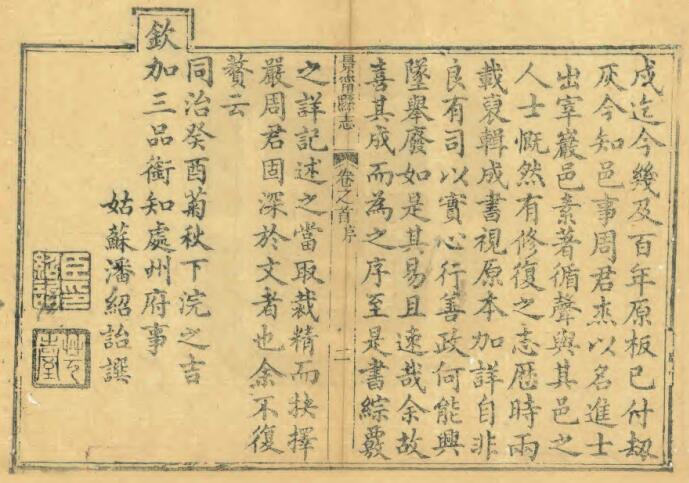 成迄今幾及百年原板已付刼
灰今知邑事周君杰以名進士
出宰巖邑素著循聲與其邑之
人士慨然有修復之志歷時兩
載裒輯成書視原本加詳自非
良有司以實心行善政何能興
墜舉廢如是其易且速哉余故
喜其成而為之序至是書綜覈
景甯縣志
卷之首序
二
之詳記述之當取裁精而抉擇
嚴周君固深於文者也余不復
贅云
同治癸酉菊秋下浣之吉
欽加三品銜知處州府事
姑蘇潘紹詒譔
臣印紹詒